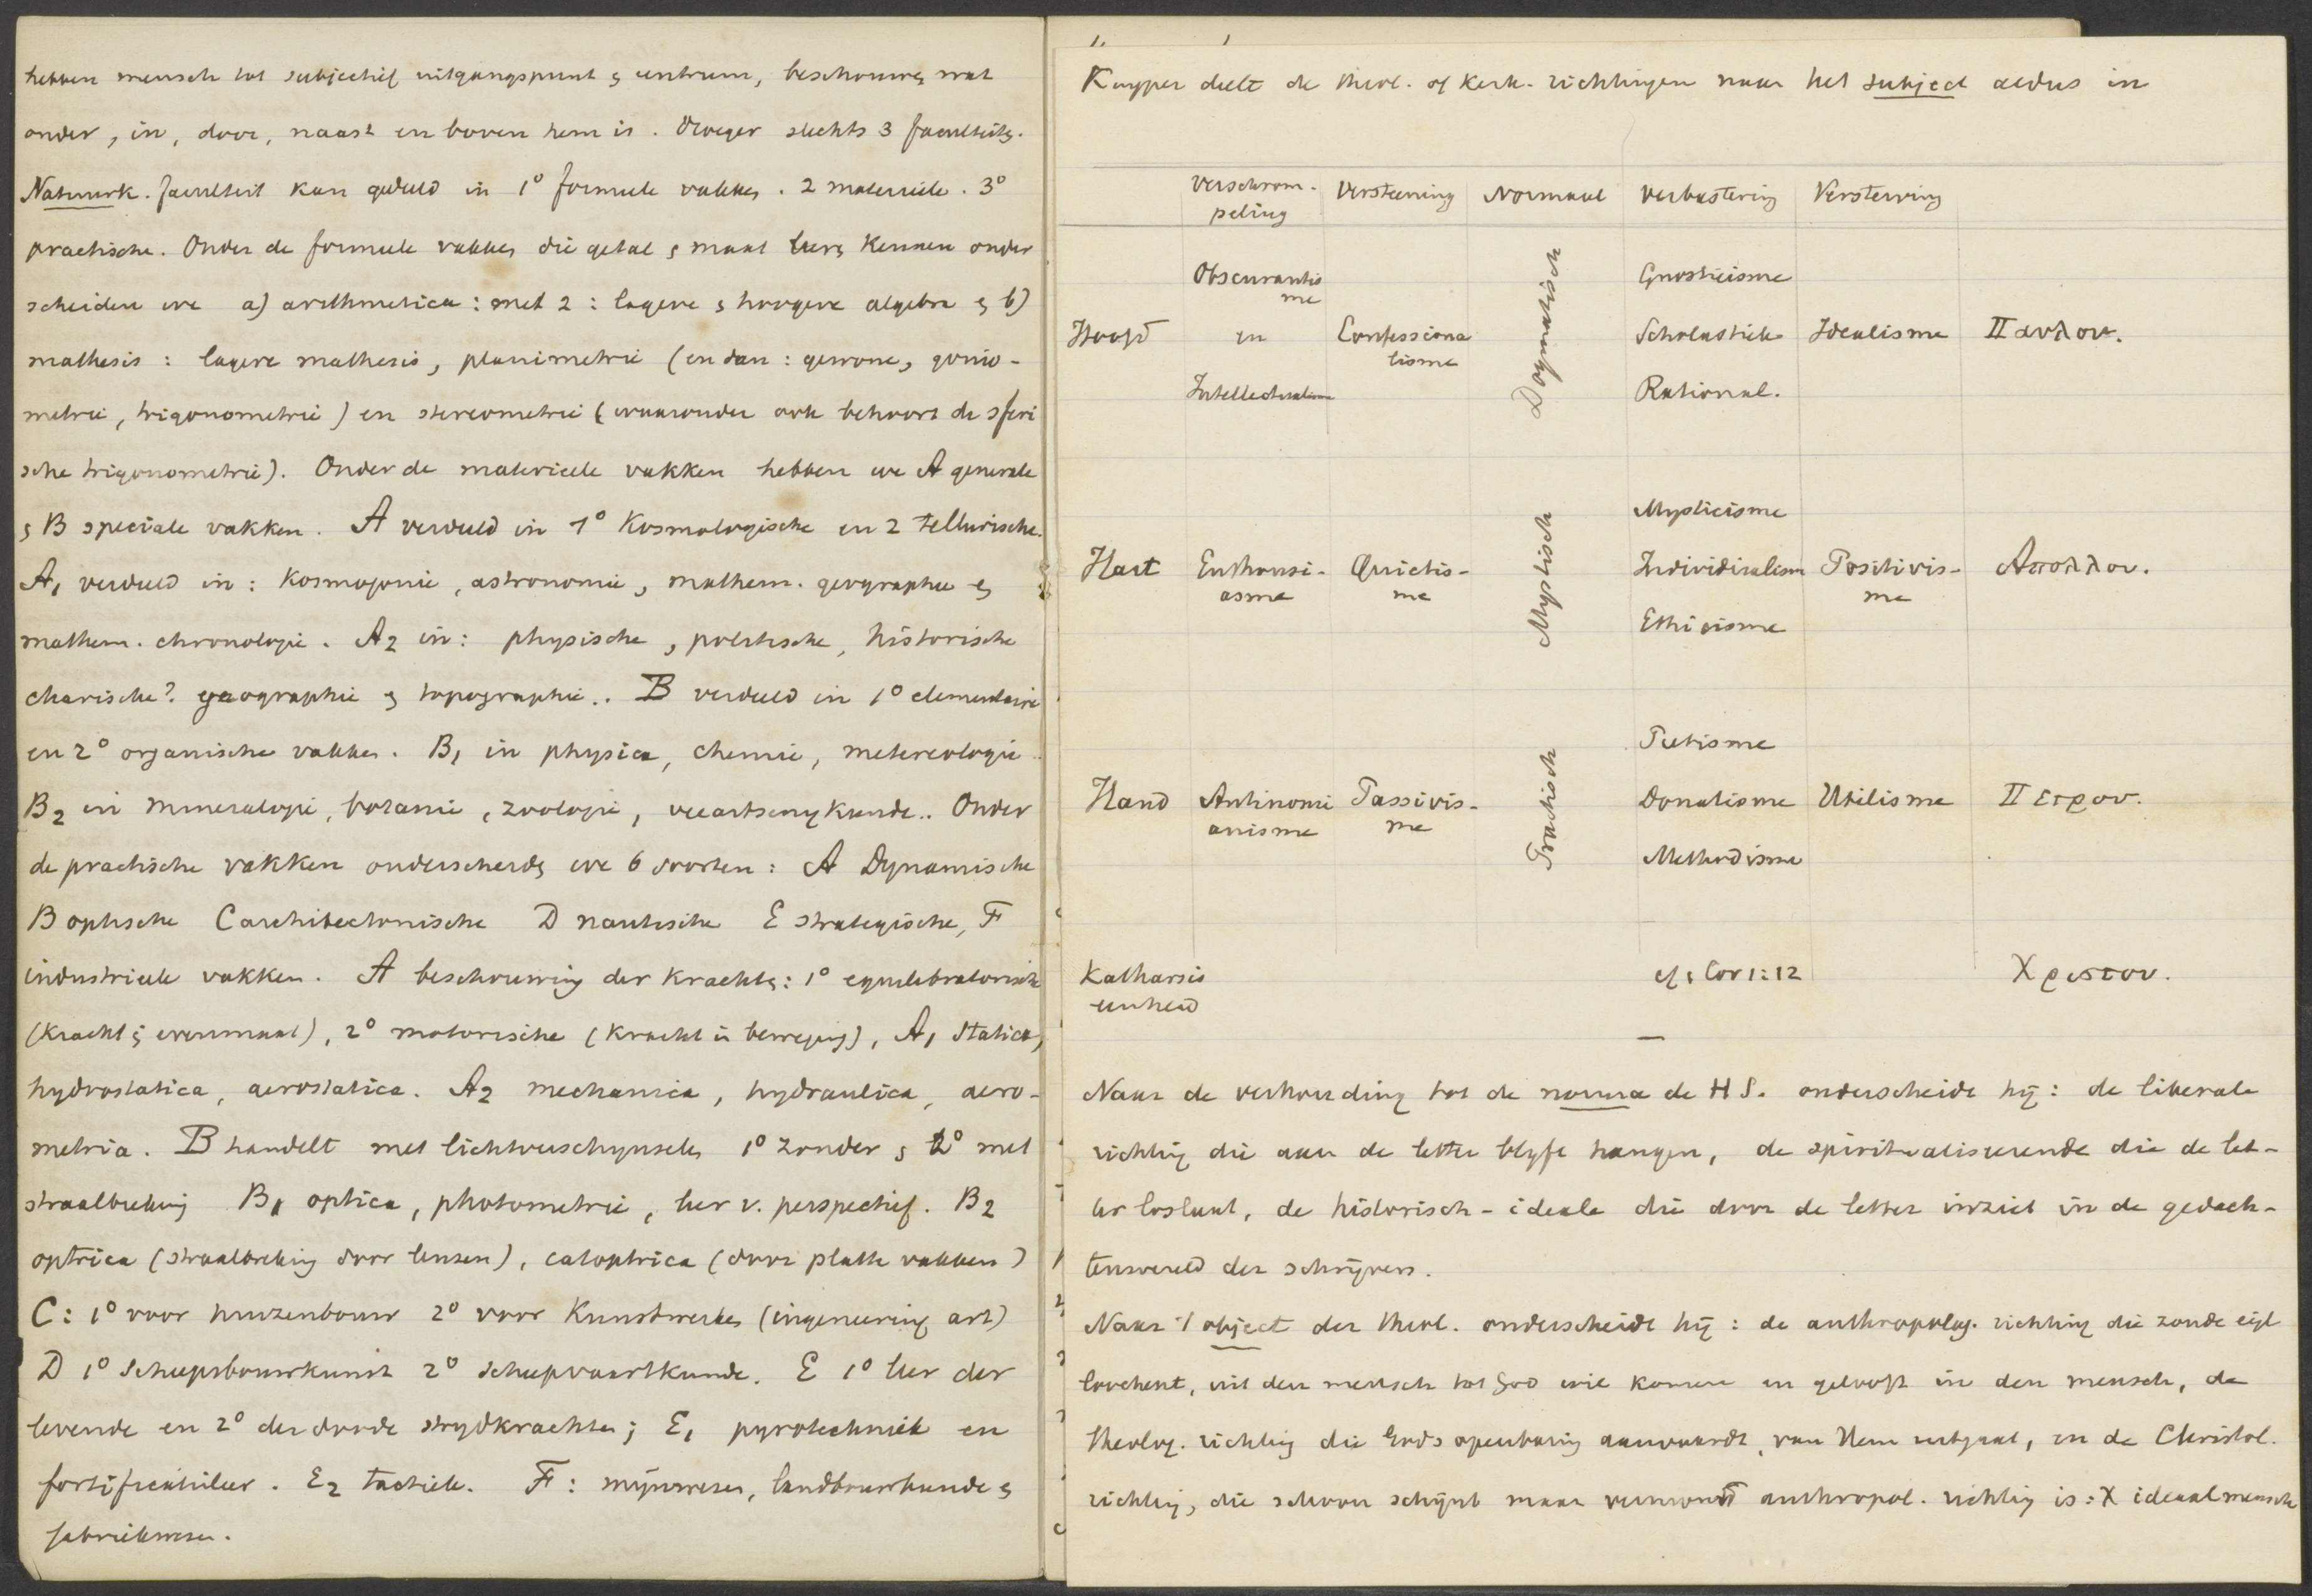 hebben mensch tot subjectief uitgangspunt & centrum, beschouwg wat
onder, in, door, naast en boven hem is. Vroeger slechts 3 faculteitg.
Natuurk. faculteit kan gedeeld in 1° formeele vakkg. 2 materieele. 3°
practische. Onder de formeele vakkg die getal & maat leerg kennen onder
scheiden we a) arithmetica: met 2: lagere & hoogere algebra & b)
mathesis: lagere mathesis, planimetrie (en dan: gewone, gonio-
metrie, trigonometrie) en stereometrie (waaronder ook behoort de sferi
sche trigonometrie). Onder de materieele vakken hebben we A generale
& B speciale vakken. A verdeeld in 1° Kosmologische en 2 tellurische.
A1 verdeeld in: Kosmogonie, astronomie, mathem. geographie &
mathem. chronologie. A2 in: physische, politische, historische
charische? geographie & topographie.. B verdeeld in 1° elementaire
en 2° organische vakkg. B1 in physica, chemie, metereologie
B2 in mineralogie, botanie, zoologie, veeartsenykunde.. Onder
de practische vakken onderscheidg we 6 soorten: A Dynamische
B optische C architectonische D nautische E strategische, F
industrieele vakken. A beschouwing der krachtg: 1° equilibratorische
(kracht & evenmaat), 2° motorische (kracht in beweging), A1 statica,
hydrostatica, aerostatica. A2 mechanica, hydraulica, aero-
metria. B handelt met lichtverschynselg 1° zonder & 2° met
straalbreking B1 optica, photometrie, leer v. perspectief. B2
optrica (straalbreking door lenzen), catoptrica (door platte vakken)
C: 1° voor huizenbouw 2° voor Kunstwerkg (ingeneering art)
D 1° Scheepsbouwkunst 2° scheepvaartkunde. E 1° leer der
levende en 2° der doode strydkrachten; E1 pyrotechniek en
fortificatieleer. E2 tactiek. F: mijnwezen, landbouwkunde &
fabriekwezen.
Kuyper deelt de theol. of kerk. richtingen naar het subject aldus in
Verschrom-
peling Versteening Normaal Verbastering Versterving
Obscurantis
me
Hoofd en Confessiona
lisme Dogmatisch Gnosticisme
Scholastiek Idealisme Παυλου.
Intellectualisme Rational.
Mysticisme
Hart Enthousi-
asme Quietis-
me Mystisch Individualism Positivis-
me Απολλου.
Ethicisme
Pietisme
Hand Antinomi
anisme Passivis-
me Practisch Donatisme Utilisme Πετρου.
Methodisme
Katharsis
eenheid cf 1 Cor 1:12 Χριστου.
Naar de verhouding tot de norma de H S. onderscheidt hij: de liberale
richtig die aan de letter blyft hangen, de spiritualiseerende die de let-
ter loslaat, de historisch-ideale die door de letter inziet in de gedach-
tenwereld der schrijvers.
Naar 't object der theol. onderscheidt hij: de anthropolog. richting die zonde eigl
loochent, uit den mensch tot God wil komen en gelooft in den mensch, de
theolog. richtig die Gods openbaring aanvaardt, van Hem uitgaat, en de Christol.
richtig, die schoon schijnt maar anthropol. richtig is: X ideaalmensch